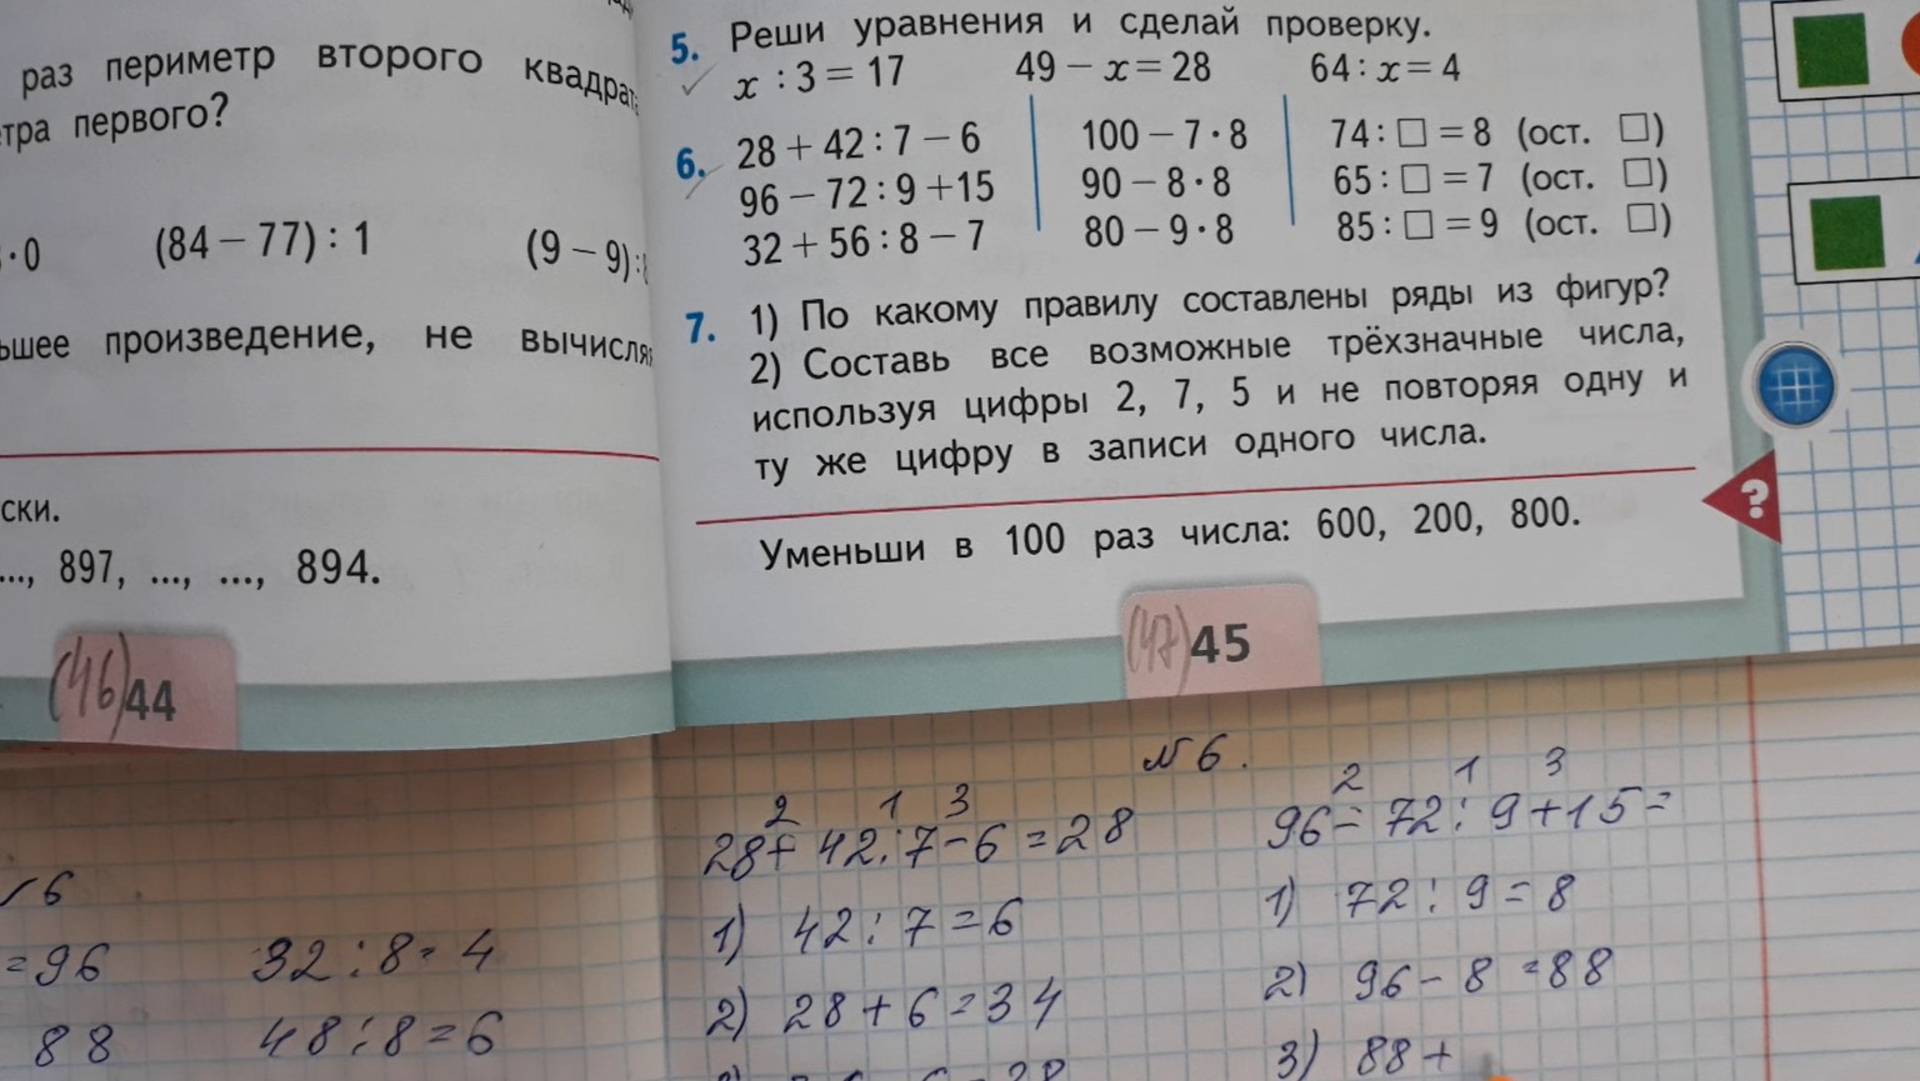 раз периметр второго квадрат
тра первого?
· 0 (84 – 77) : 1 (9 – 9) :
ьшее произведение, не вычисля
ски.
..., 897, ..., ..., 894.
(46) 44
5. Реши уравнения и сделай проверку.
x : 3 = 17 49 – x = 28 64 : x = 4
6. 28 + 42 : 7 – 6 100 – 7 · 8 74 : □ = 8 (ост. □)
96 – 72 : 9 + 15 90 – 8 · 8 65 : □ = 7 (ост. □)
32 + 56 : 8 – 7 80 – 9 · 8 85 : □ = 9 (ост. □)
7. 1) По какому правилу составлены ряды из фигур?
2) Составь все возможные трёхзначные числа,
используя цифры 2, 7, 5 и не повторяя одну и
ту же цифру в записи одного числа.
?
Уменьши в 100 раз числа: 600, 200, 800.
(47) 45
6
= 96 32 : 8 = 4
88 48 : 8 = 6
№ 6.
2 1 3
28 + 42 : 7 – 6 = 28
1) 42 : 7 = 6
2) 28 + 6 = 34
2 1 3
96 – 72 : 9 + 15 =
1) 72 : 9 = 8
2) 96 – 8 = 88
3) 88 +